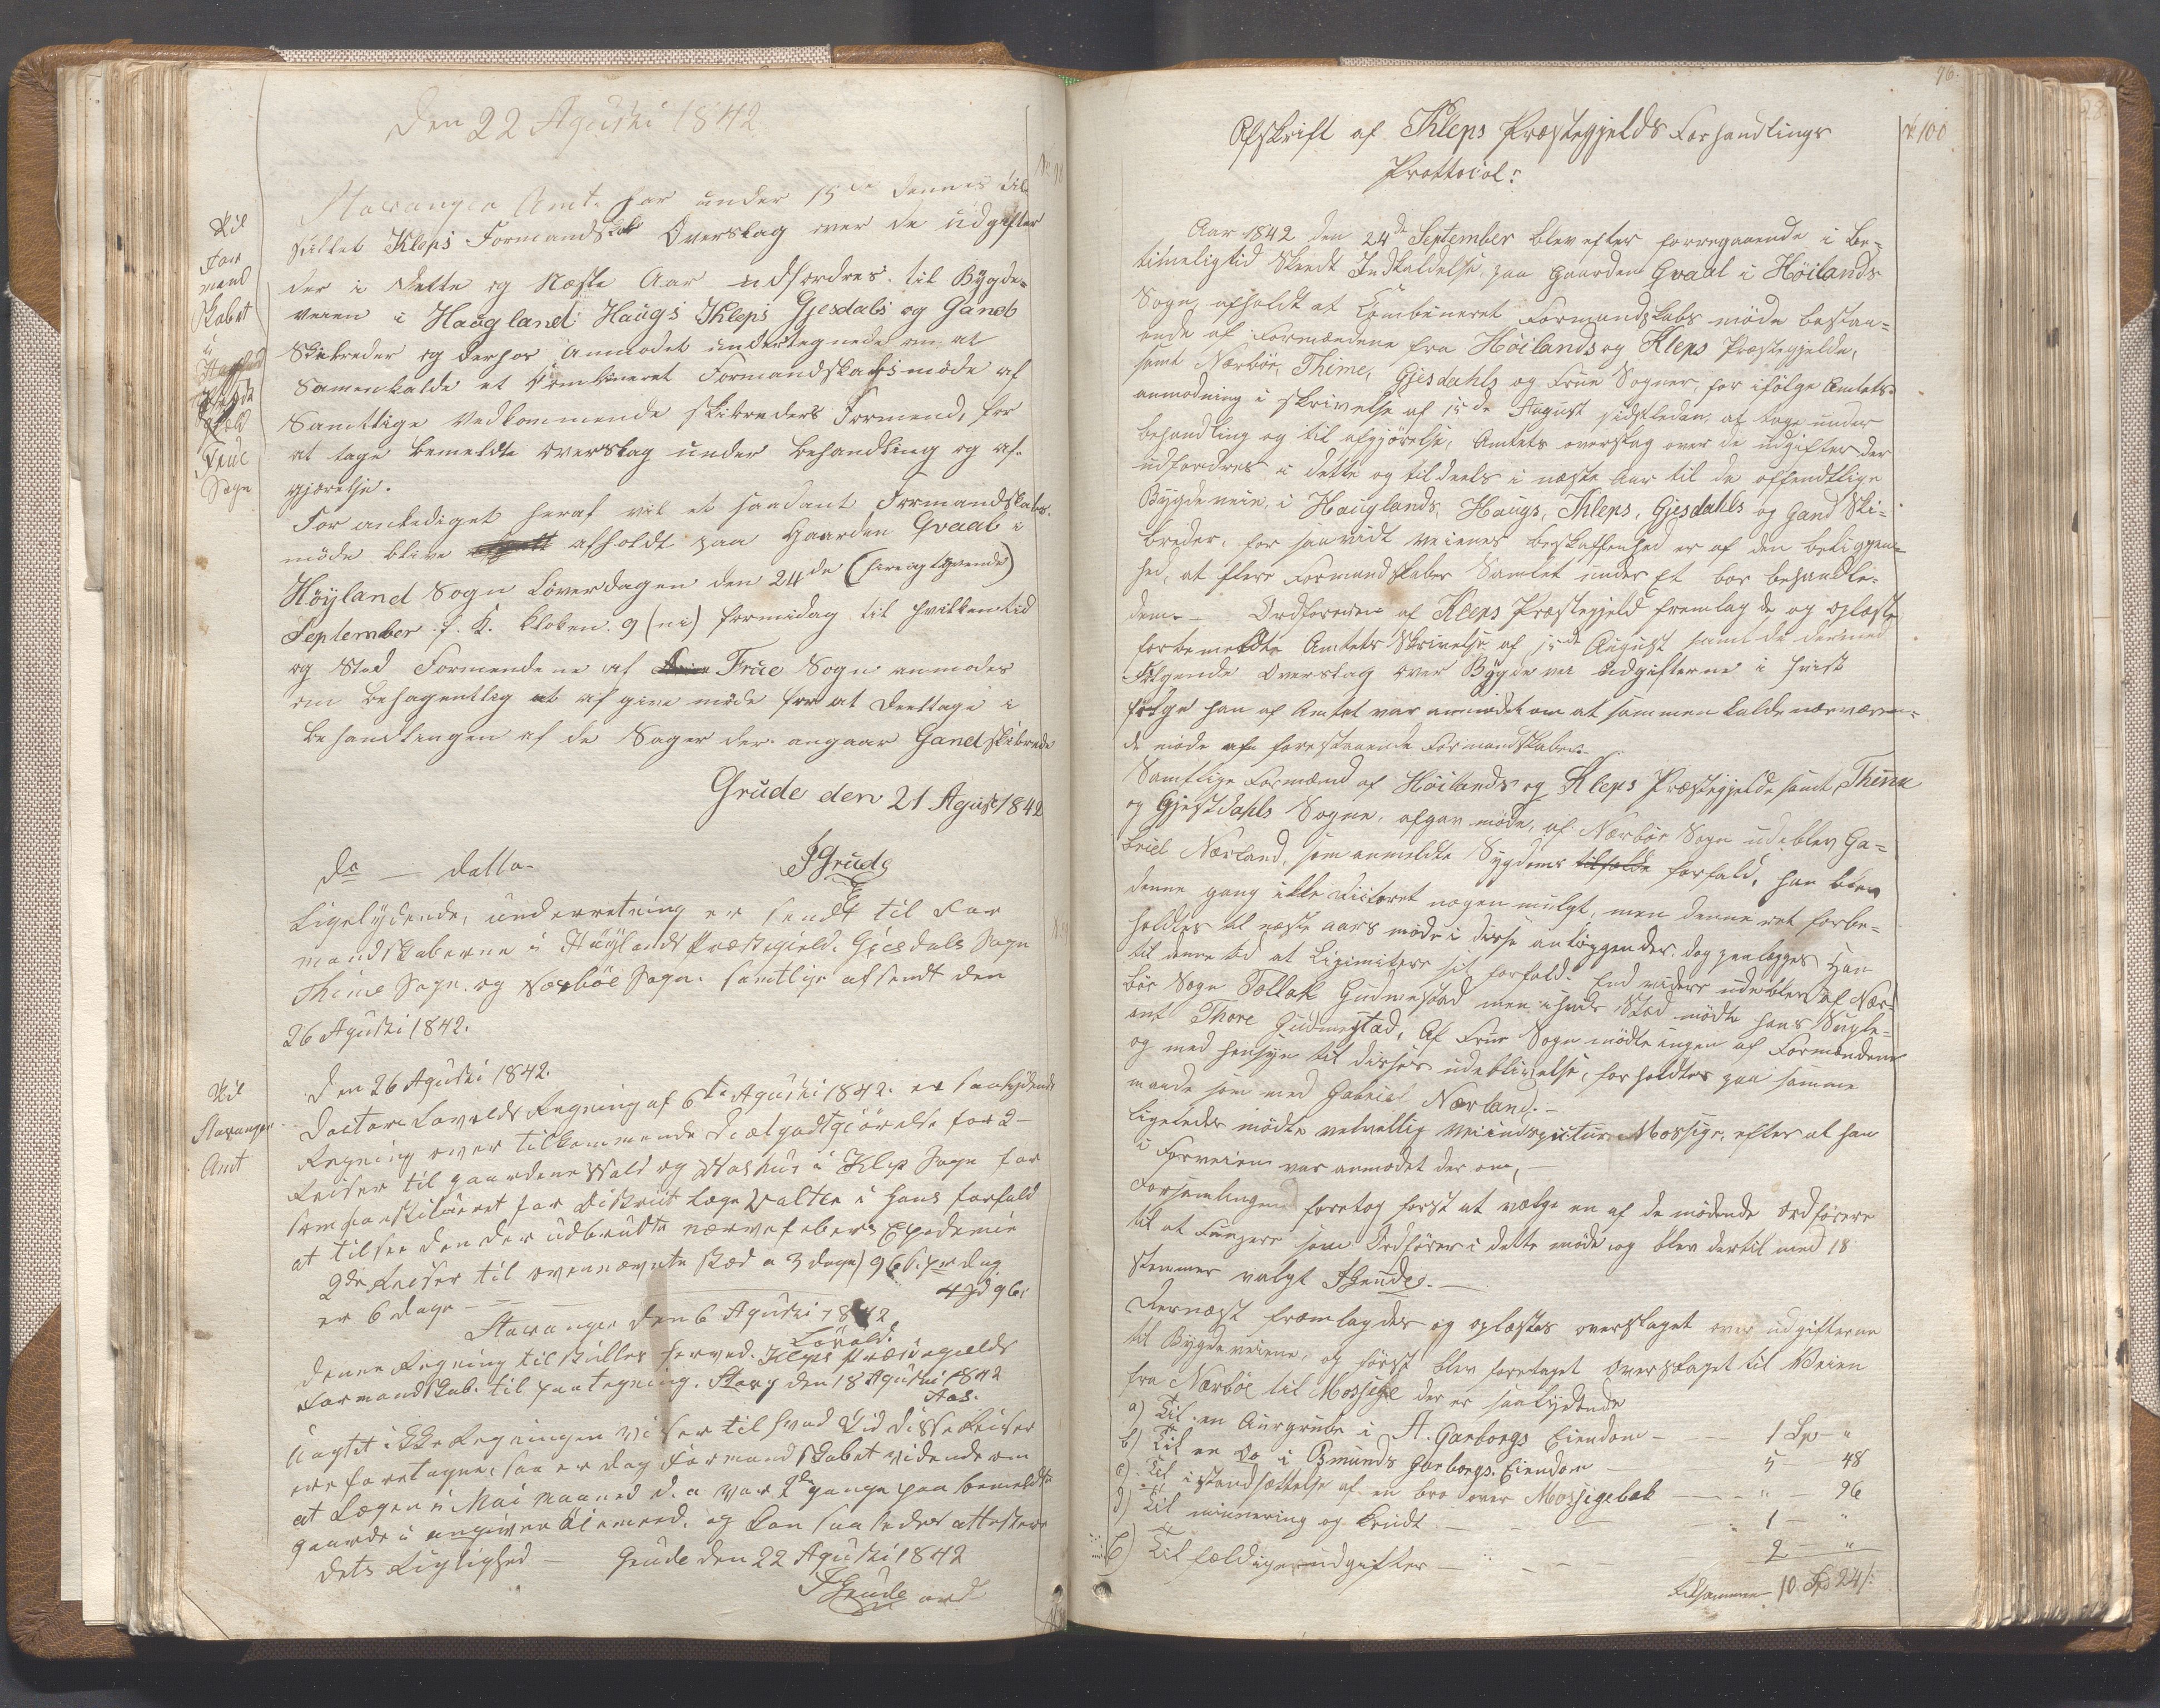 Den 22 Agusti 1842
No 98
Stavanger Amt. har under 15de dennes til
stillet Kleps Formandskab Overslag over de udgifter
der i Dette og Næste Aar udfordres til Bygde-
veien i Haugland Haugs Kleps Gjesdals og Gand
Skibreder og derhos Anmodet undertegnede om at
Samenkalde et Combineret Formandskabsmøde af
Samtlige Vedkommende skibreders Formend, for
at tage bemeldte Overslag under behandling og af-
gjørelse.
For anlediget heraf vil et saadant Formandskabs-
møde blive afholdt paa Gaarden Qvaal i
Höyland Sogn Løverdagen den 24de (fire og tyvende)
September f. K. kloken 9 (ni) formidag til hvilken tid
og Sted Formendene af Frue Sogn anmodes
om behagentlig at afgive møde for at deeltage i
behandlingen af de Sager der angaar Gand skibrede
Grude den 21 Agust 1842
SGrude
Til
For
mand
skabet
i
Frue
Sogn
Do — datto
Ligelydende, underretning er sendt til For
mandskaberne i Höylands Præstegield. Gjesdals Sogn
Thime Sogn. og Nærböe Sogn. samtlige afsendt den
26 Agusti 1842.
Til
Stavanger
Amt
Den 26 Agusti 1842.
Doctor Lovolds Regning af 6te Agusti 1842. er saalydende
Regning over tilkommende Diætgodtgiörelse for 2
Reiser til gaardene Wald og i Klep Sogn for
som constitueret for Districtslæge Valter i hans forfald
at tilsee den der udbrudte nærvefebers Epidemie
2de Reiser til ovennævnte Sted a 3 dage) 96 s. pr dag
er 6 dage — — 4 Spd 96 s.
Stavanger den 6 Agusti 1842
Lovold.
Denne Regning tilstilles herved Kleps Præstegields
Formandskab til paategning. Stavg den 18 Agusti 1842
Aas.
Uagtet ikke Regningen viser til hvad Tid disse Reiser
ere foretagne, saa er dog Formandskabet vidende om
at Lægen i Mai maaned d. a var 2de gange paa bemeldte
gaarde i angivne Øiemeed, og kan saaledes attestere
dets Rigtighed — Grude den 22 Agusti 1842
SGrude ord
76.
No 100
Afskrift af Kleps Præstegjelds Forhandlings
Prottocol:
Aar 1842 den 24de September blev efter foregaaende i be-
timeligtid skeedt Indkaldelse, paa gaarden Qvaal i Höilands
Sogn, afholdt et Combineret Formandskabs møde bestaa-
ende af Formændene fra Höilands og Kleps Præstegjelde,
samt Nærböe, Thime, Gjesdahls og Frue Sogner, for ifølge Amtets
anmodning i skrivelse af 15de August sidstleden, at tage under
behandling og til afgjörelse, Amtets overslag over de udgifter der
udfordres i dette og tildeels i næste Aar til de offendtlige
Bygdeveie, i Hauglands, Haugs, Kleps, Gjesdahls og Gand Ski-
breder, for saavidt veienes beskaffenhed er af den beliggen-
hed, at flere Formandskaber Samlet under Et bør behandle
dem. — Ordføreren af Kleps Præstegjeld fremlagde og oplæste
forbemeldte Amtets Skrivelse af 15de August samt de dermed
Følgende Overslag over Bygdevei udgifterne i hvis
følge han af Amtet var anmodet om at sammenkalde nærværen-
de møde af forestaaende Formandskaber.
Samtlige Formænd af Höilands og Kleps Præstegjelde samt Thime
og Gjestdahls Sogne, afgav møde, af Nærböe Sogn udeblev Ga-
briel Nærland, som anmeldte Sygdoms forfald, han blev
denne gang ikke Dicteret nogen mulgt, men denne ret forbe-
holdtes til næste aars møde i disse anliggender, dog paalægges Han
til denne tid at Ligimitere sit forfald. End videre udeblev af Nær-
böe Sogn Tollak Gudmestad men i hvis Sted mødte hans Suple-
ant Thore Gudmestad, Af Frue Sogn mødte ingen af Formændene
og med hensyn til disses udeblivelse, forholdtes paa samme
maade som med Gabriel Nærland. —
Ligeledes mødte velvillig Veiinspecteur Mossige, efter at han
i Forveien var anmodet der om, —
Forsamlingen foretog først at vælge en af de mødende Ordförere
til at Fungere som Ordförer i dette møde og blev dertil med 18
stemmer valgt SGrude. —
Dernæst fremlagdes og oplæstes overslaget over udgifterne
til Bygdeveiene, og først blev foretaget Overslaget til Veien
fra Nærböe til Mossige der er saalydende
a) Til en Aurgrube i A. Garborgs Eiendom — 1 Sp — "
b) Til en Do i Osmunds Garborgs Eiendom — 5 — 48
c) Til istandsættelse af en bro over Mossigebæk — " — 96
d) Til minnering og Krudt — 1 — "
e) Til fældige udgifter — 2 — "
Tilsammen 10 Spd 24 s.